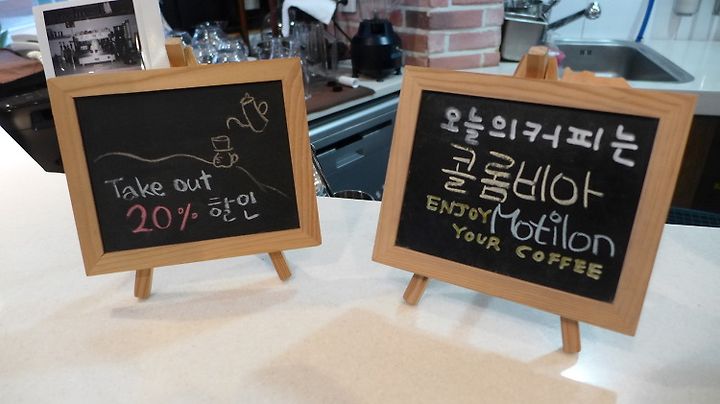 Take out
20% 할인
오늘의 커피는
콜롬비아
ENJOY Motilon
YOUR COFFEE